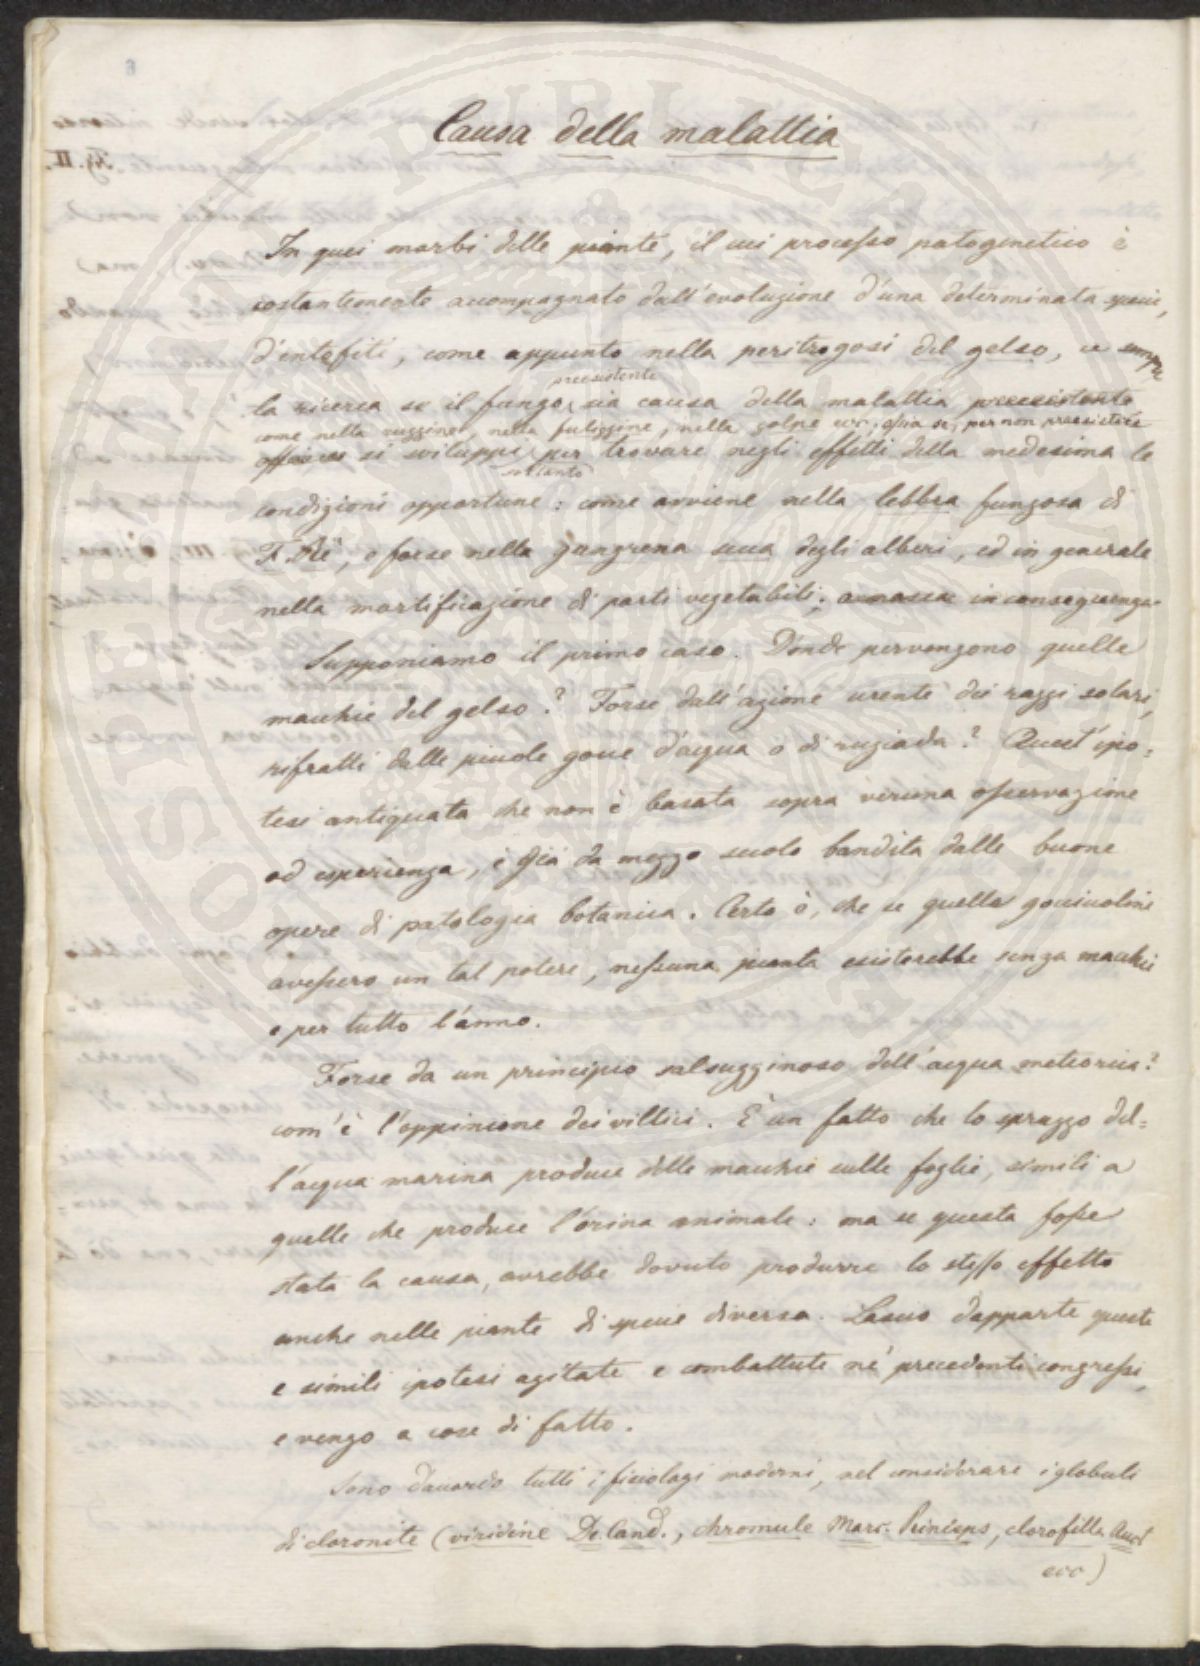 Causa della malattia
In quei morbi delle piante, il cui processo patogenetico è
costantemente accompagnato dall'evoluzione d'una determinata specie,
d'intofiti, come appunto nella peritrogosi del gelso, ce sempre
preesistente
la ricerca se il fungo sia causa della malattia preesistente
come nella ruggine, nella fuliggine, nella golpe ecc., ossia se, per non preesistere
si sviluppi per trovare negli effetti della medesima le
soltanto
condizioni opportune: come avviene nella lebbra fungosa di
F. Rè, e forse nella gangrena secca degli alberi, ed in generale
nella mortificazione di parti vegetabili; in conseguenza.
Supponiamo il primo caso. D'onde pervengono quelle
macchie del gelso? Forse dall'azione urente dei raggi solari,
rifratti dalle picole gocce d'acqua o di rugiada? Quest'ipo=
tesi antiquata che non è basata sopra veruna osservazione
od esperienza, è già da mezzo secolo bandita dalle buone
opere di patologia botanica. Certo è, che se quelle gocciuoline
avessero un tal potere, nessuna pianta esisterebbe senza macchie
e per tutto l'anno.
Forse da un principio salsugginoso dell'acqua meteorica?
com'è l'oppinione dei villici. È un fatto che lo sprazzo del=
l'acqua marina produce delle macchie sulle foglie, simili a
quelle che produce l'orina animale: ma se questa fosse
stata la causa, avrebbe dovuto produrre lo stesso effetto
anche nelle piante di specie diversa. Lascio dapparte queste
e simili ipotesi agitate e combattute ne' precedenti congressi,
e vengo a cose di fatto.
Sono d'accordo tutti i fisiologi moderni, nel considerare i globuli
di cloronite (viridine DeCand., chromule Marc. Princeps, clorofilla Auct
ecc)